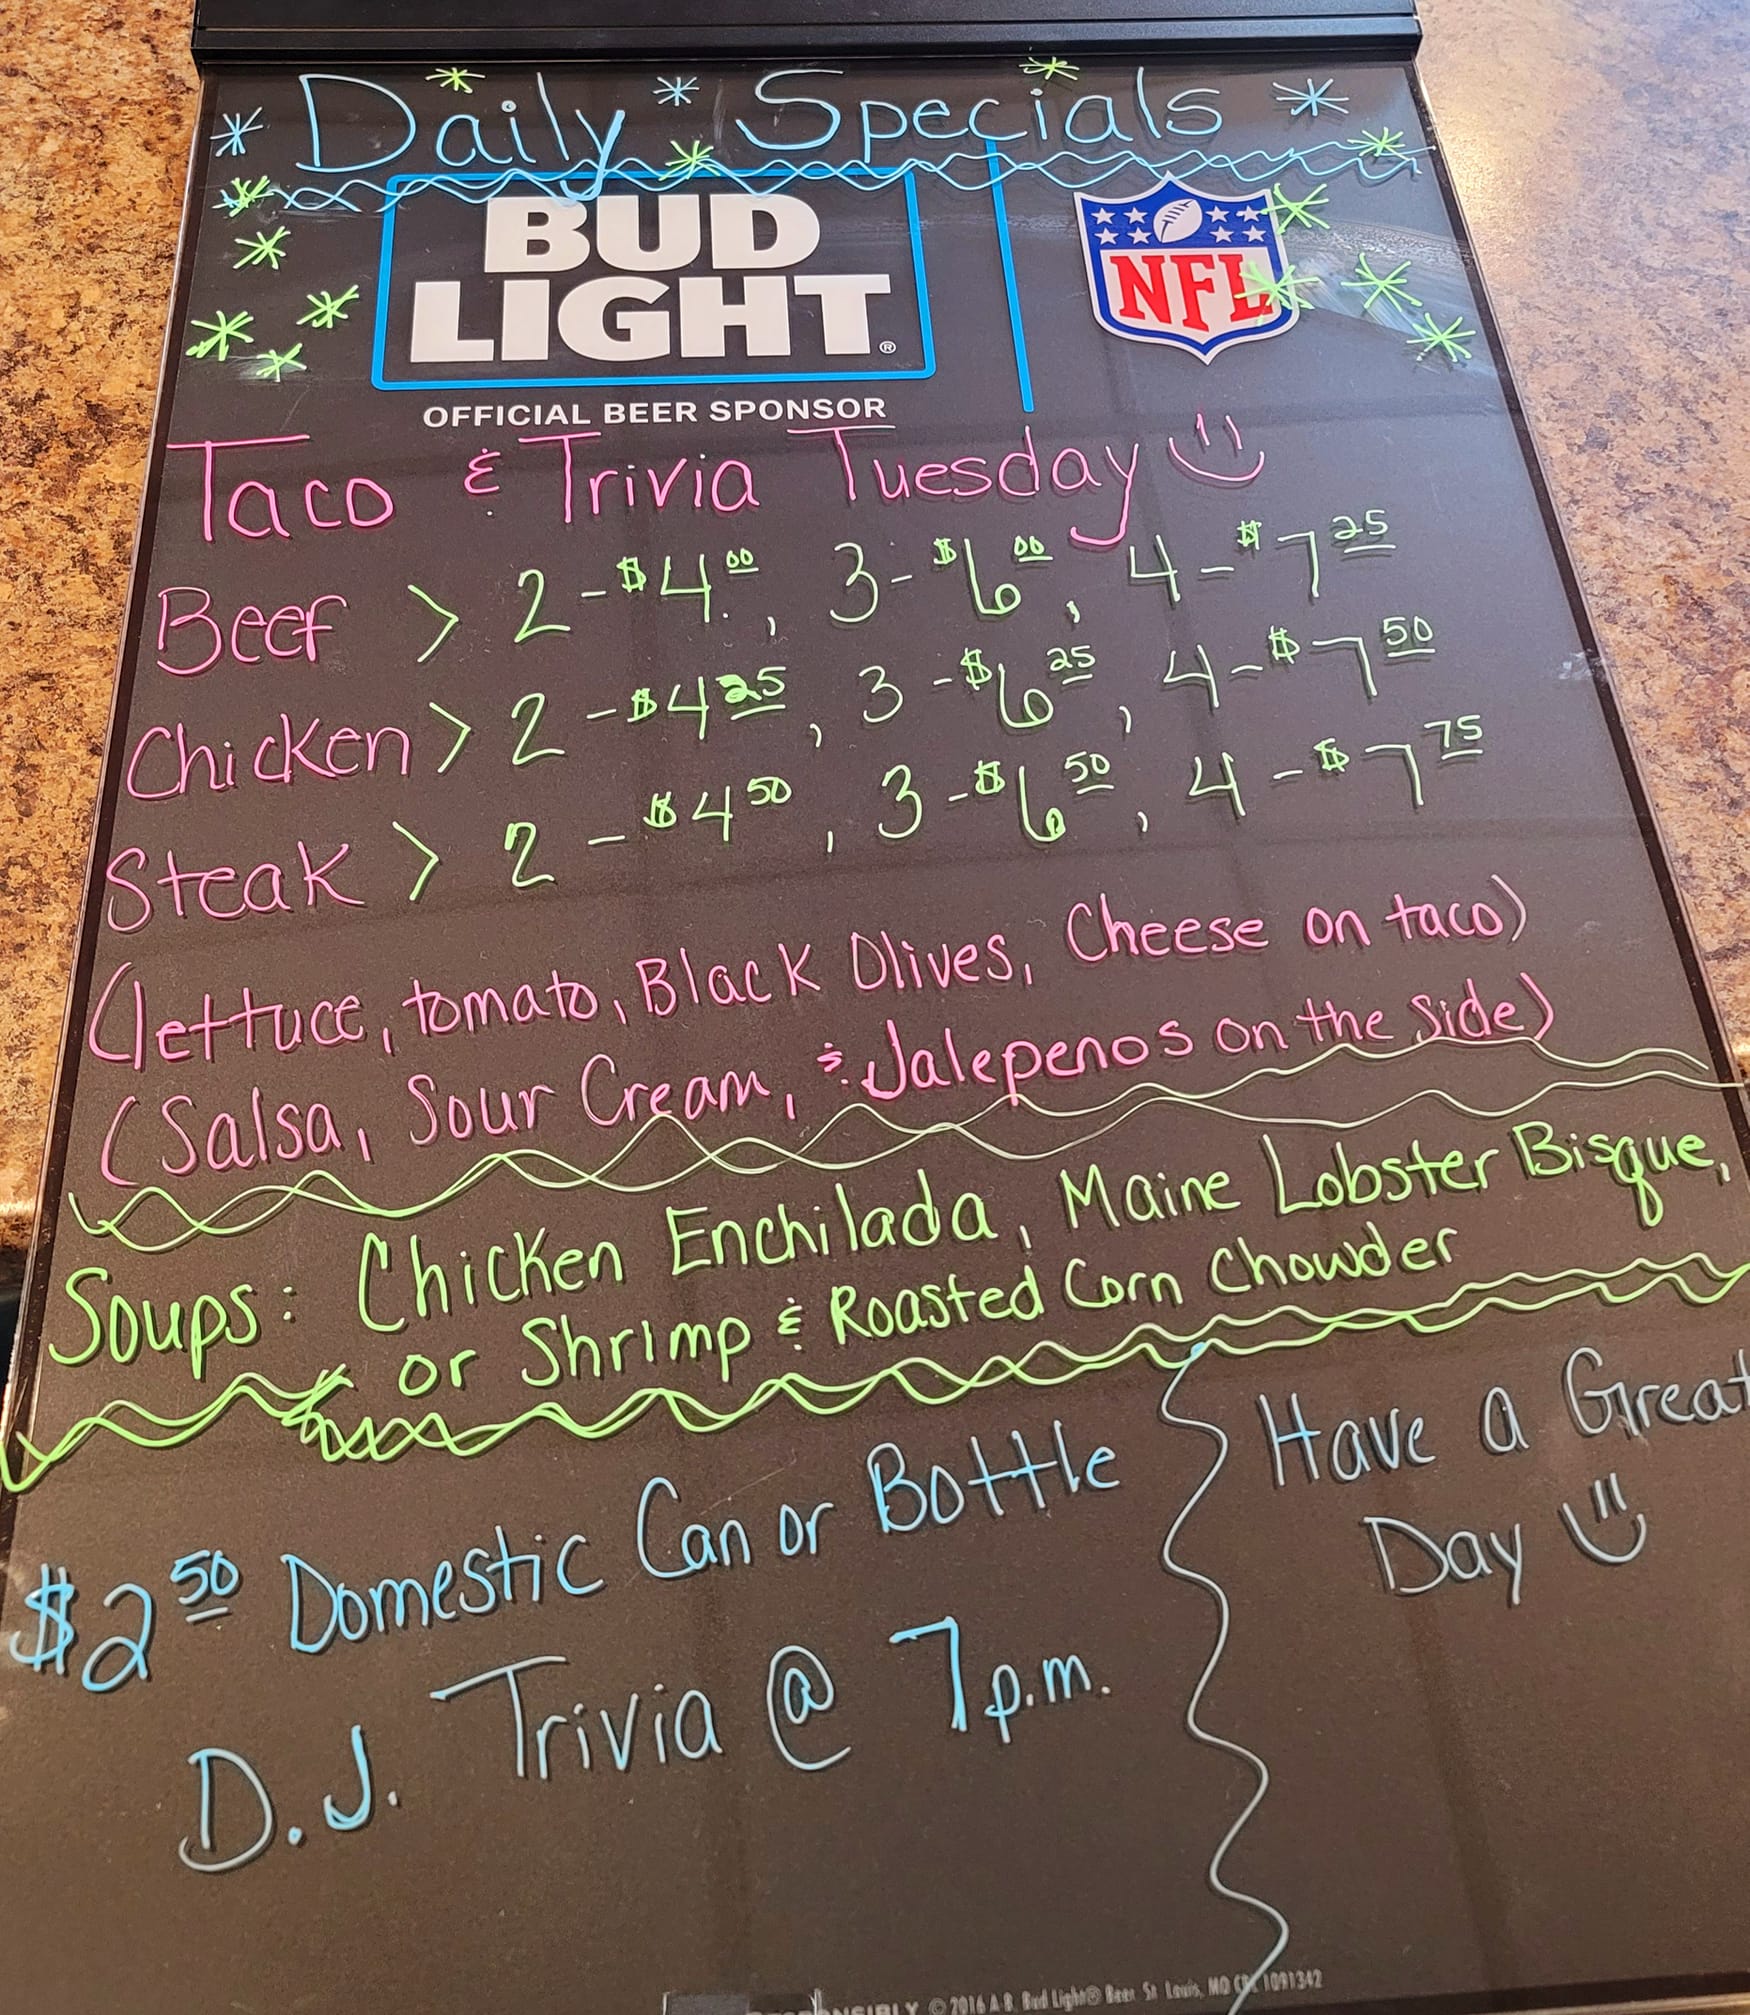 Daily Specials
BUD
LIGHT®
OFFICIAL BEER SPONSOR
NFL
Taco & Trivia Tuesday
Beef > 2 - $4.00, 3 - $6.00, 4 - $7.25
Chicken > 2 - $4.25, 3 - $6.25, 4 - $7.50
Steak > 2 - $4.50, 3 - $6.50, 4 - $7.75
(lettuce, tomato, Black Olives, Cheese on taco)
(Salsa, Sour Cream, & Jalepenos on the side)
Soups: Chicken Enchilada, Maine Lobster Bisque,
or Shrimp & Roasted Corn Chowder
$2.50 Domestic Can or Bottle
D.J. Trivia @ 7 p.m.
Have a Great
Day
©2016 A-B, Bud Light® Beer, St. Louis, MO 1091342